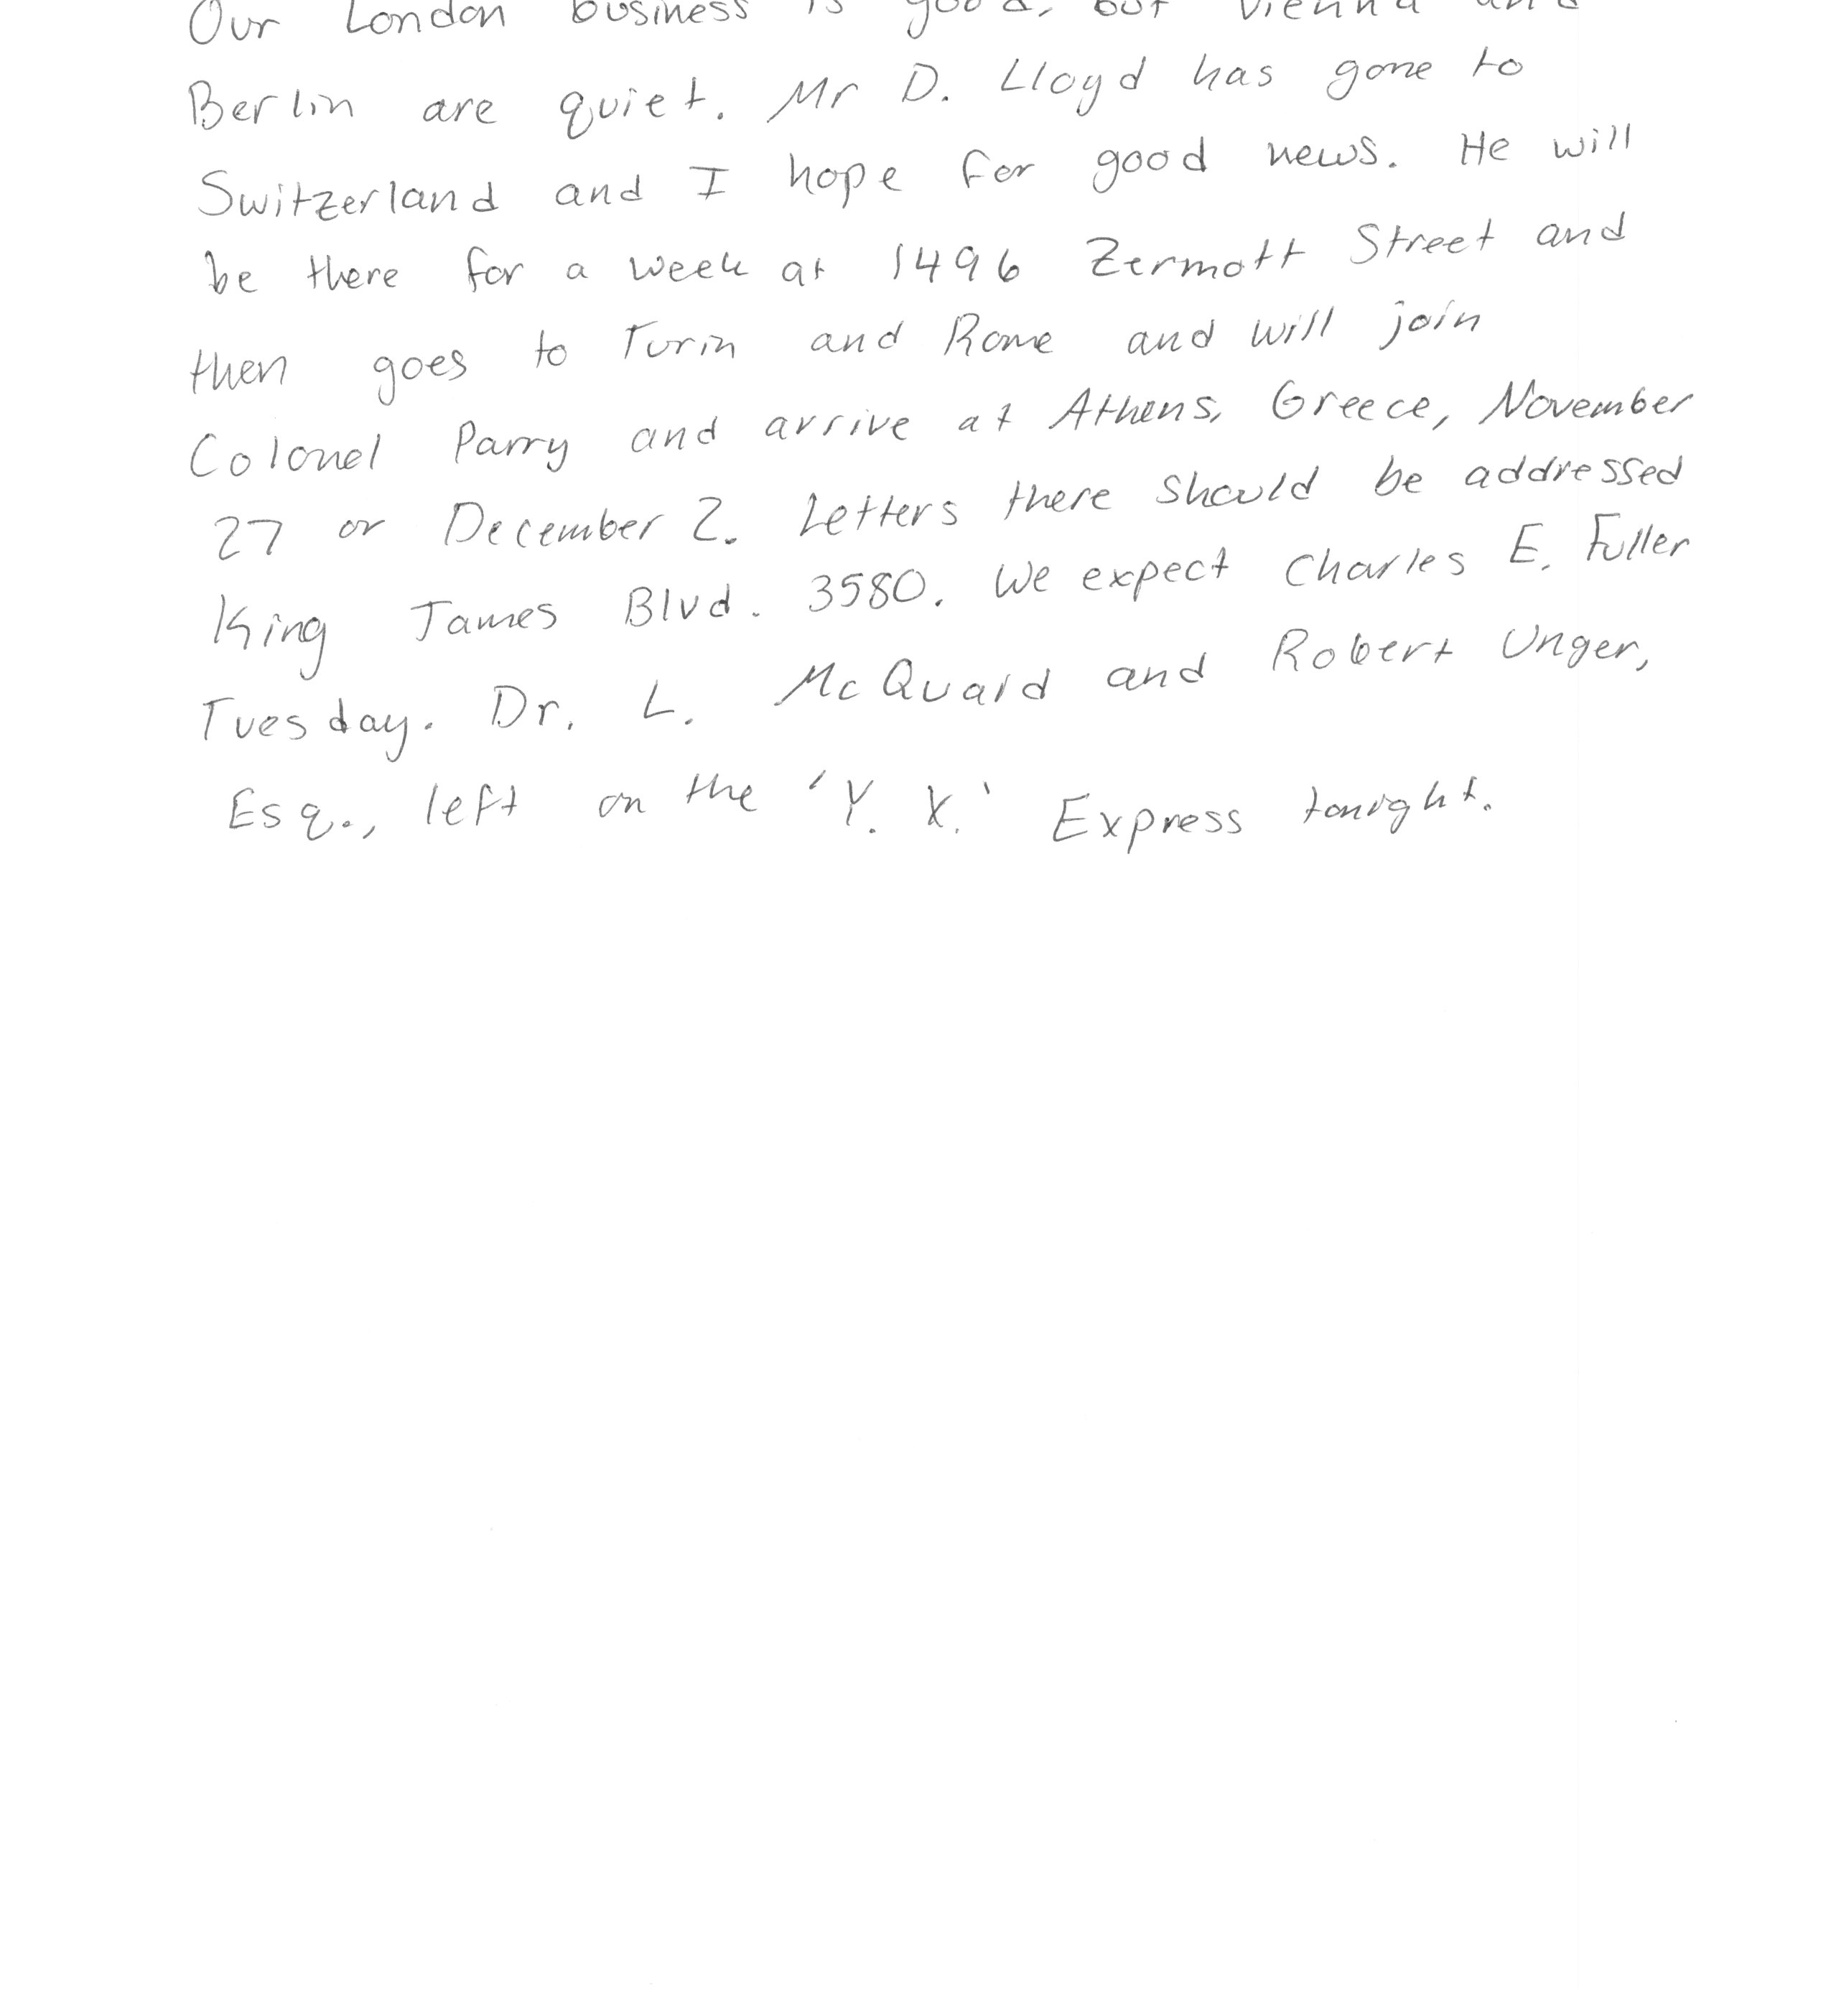 Our London business is good, but Vienna and
Berlin are quiet. Mr D. Lloyd has gone to
Switzerland and I hope for good news. He will
be there for a week at 1496 Zermott Street and
then goes to Turin and Rome and will join
Colonel Parry and arrive at Athens, Greece, November
27 or December 2. Letters there should be addressed
King James Blvd. 3580. We expect Charles E. Fuller
Tuesday. Dr. L. McQuaid and Robert Unger,
Esq., left on the 'Y. X.' Express tonight.